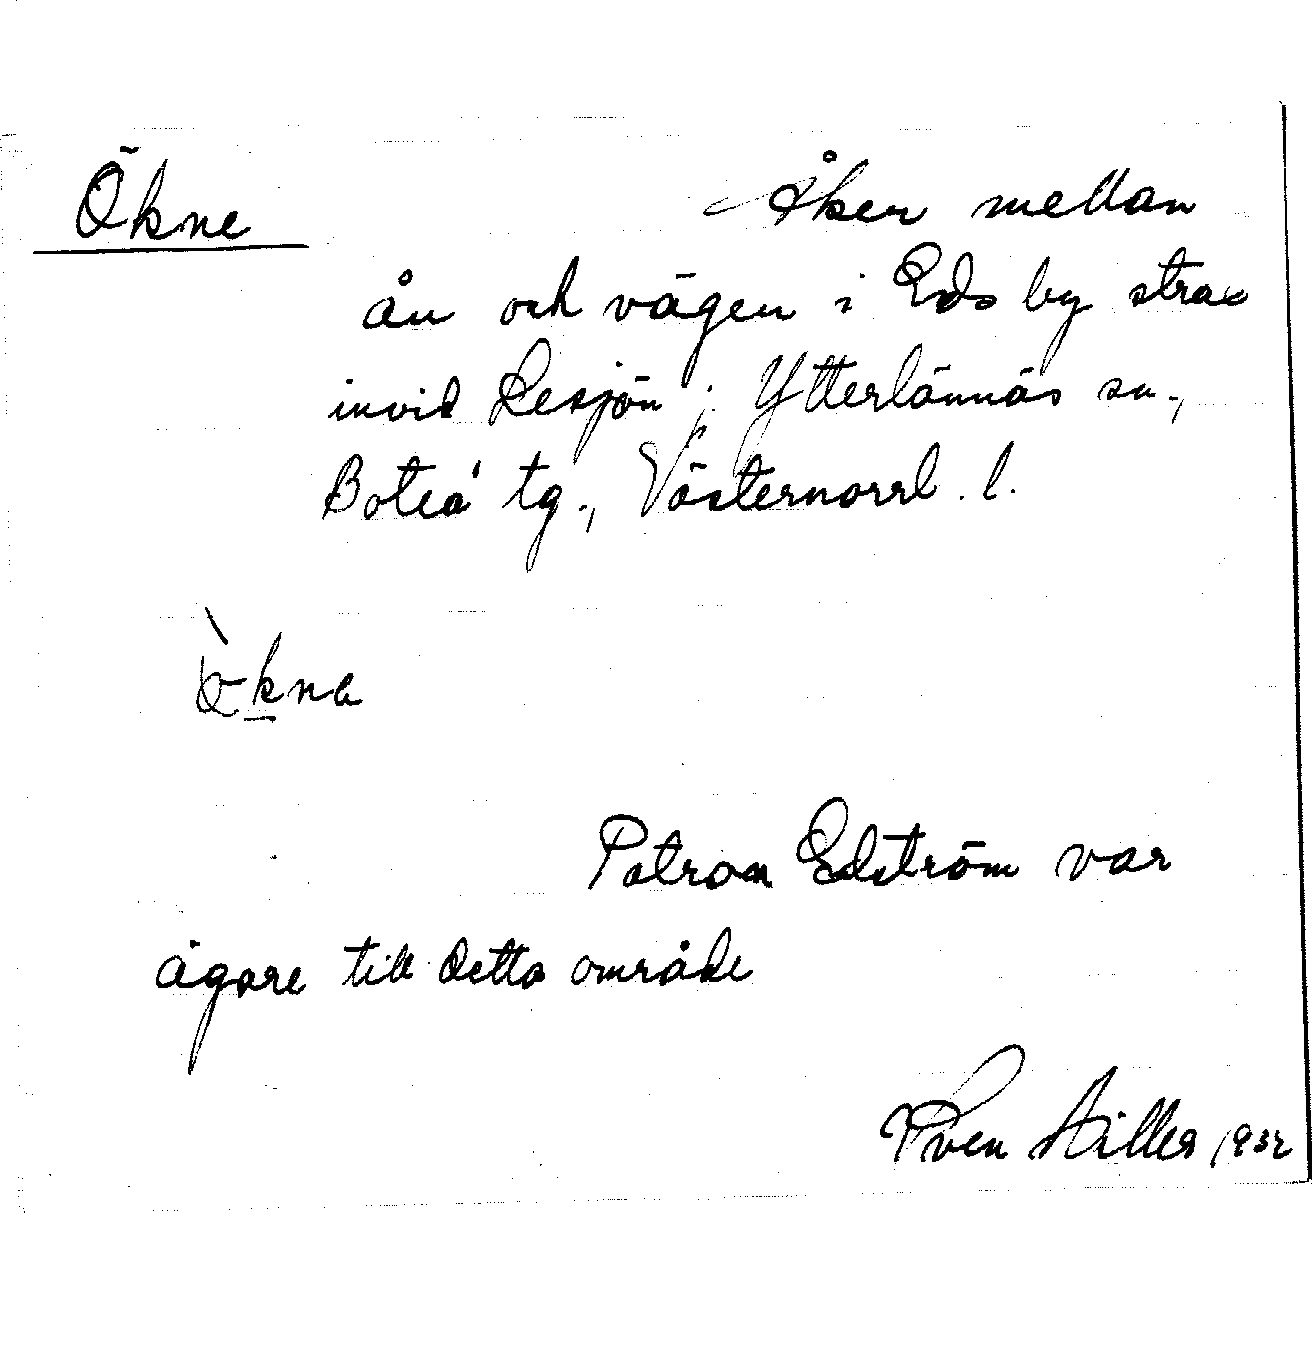 Ökne
Åker mellan
ån och vägen i Eds by strax
invid Lesjön i Ytterlännäs sn.,
Boteå tg., Västernorrl. l.
Patron Edström var
ägare till detta område
1932